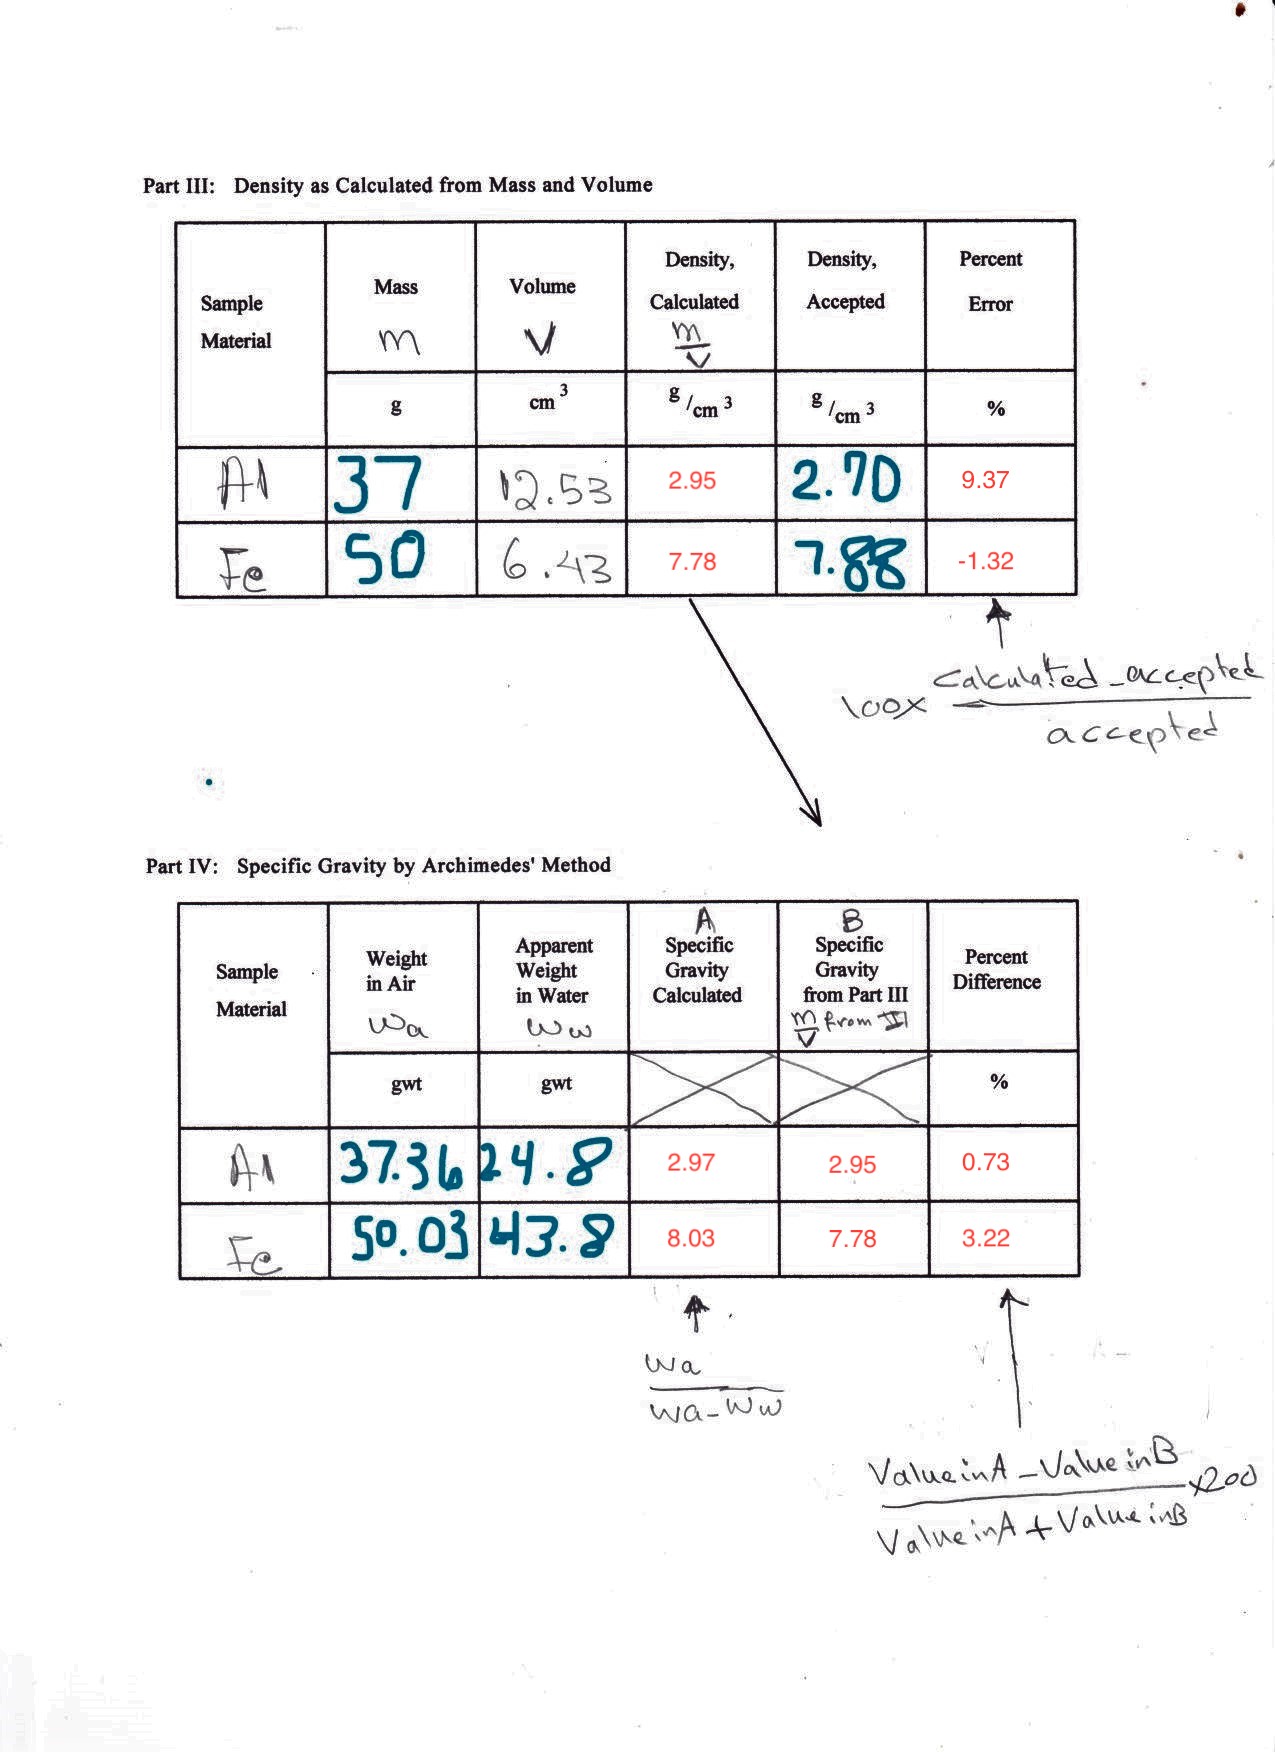 Part III: Density as Calculated from Mass and Volume
Sample Material
Mass
m
Volume
V
Density, Calculated
m/V
Density, Accepted
Percent Error
g
cm 3
g/cm 3
g/cm 3
%
Al 37 12.53 2.95 2.70 9.37
Fe 50 6.43 7.78 7.88 -1.32
100x calculated - accepted
accepted
Part IV: Specific Gravity by Archimedes' Method
Sample Material
Weight in Air
Wa
Apparent Weight in Water
Ww
A
Specific Gravity Calculated
B
Specific Gravity from Part III
m/V from III
Percent Difference
gwt
gwt
%
Al 37.36 24.8 2.97 2.95 0.73
Fe 50.03 43.8 8.03 7.78 3.22
Wa
Wa-Ww
Value in A - Value in B
x200
Value in A + Value in B